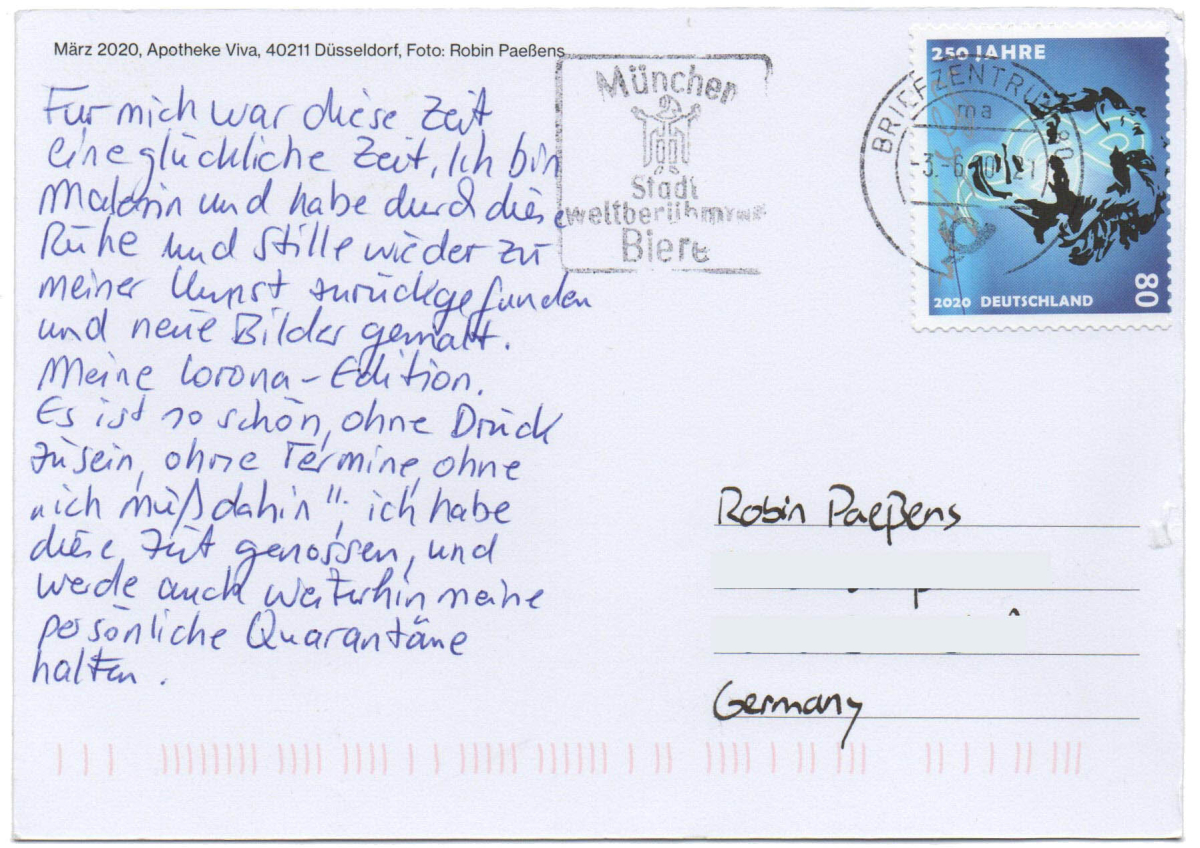 März 2020, Apotheke Viva, 40211 Düsseldorf, Foto: Robin Paeßens
Für mich war diese Zeit
eine glückliche Zeit, Ich bin
Malerin und habe durch diese
Ruhe und Stille wieder zu
meiner Kunst zurückgefunden
und neue Bilder gemalt.
Meine Corona-Edition.
Es ist so schön, ohne Druck
zu sein, ohne Termine, ohne
"ich muß dahin"; ich habe
diese Zeit genossen, und
werde auch weiterhin meine
persönliche Quarantäne
halten.
München
Stadt
weltberühmter
Biere
BRIEFZENTRUM 80
ma
-3.-6. 21
250 JAHRE
2020 DEUTSCHLAND
80
Robin Paeßens
Germany